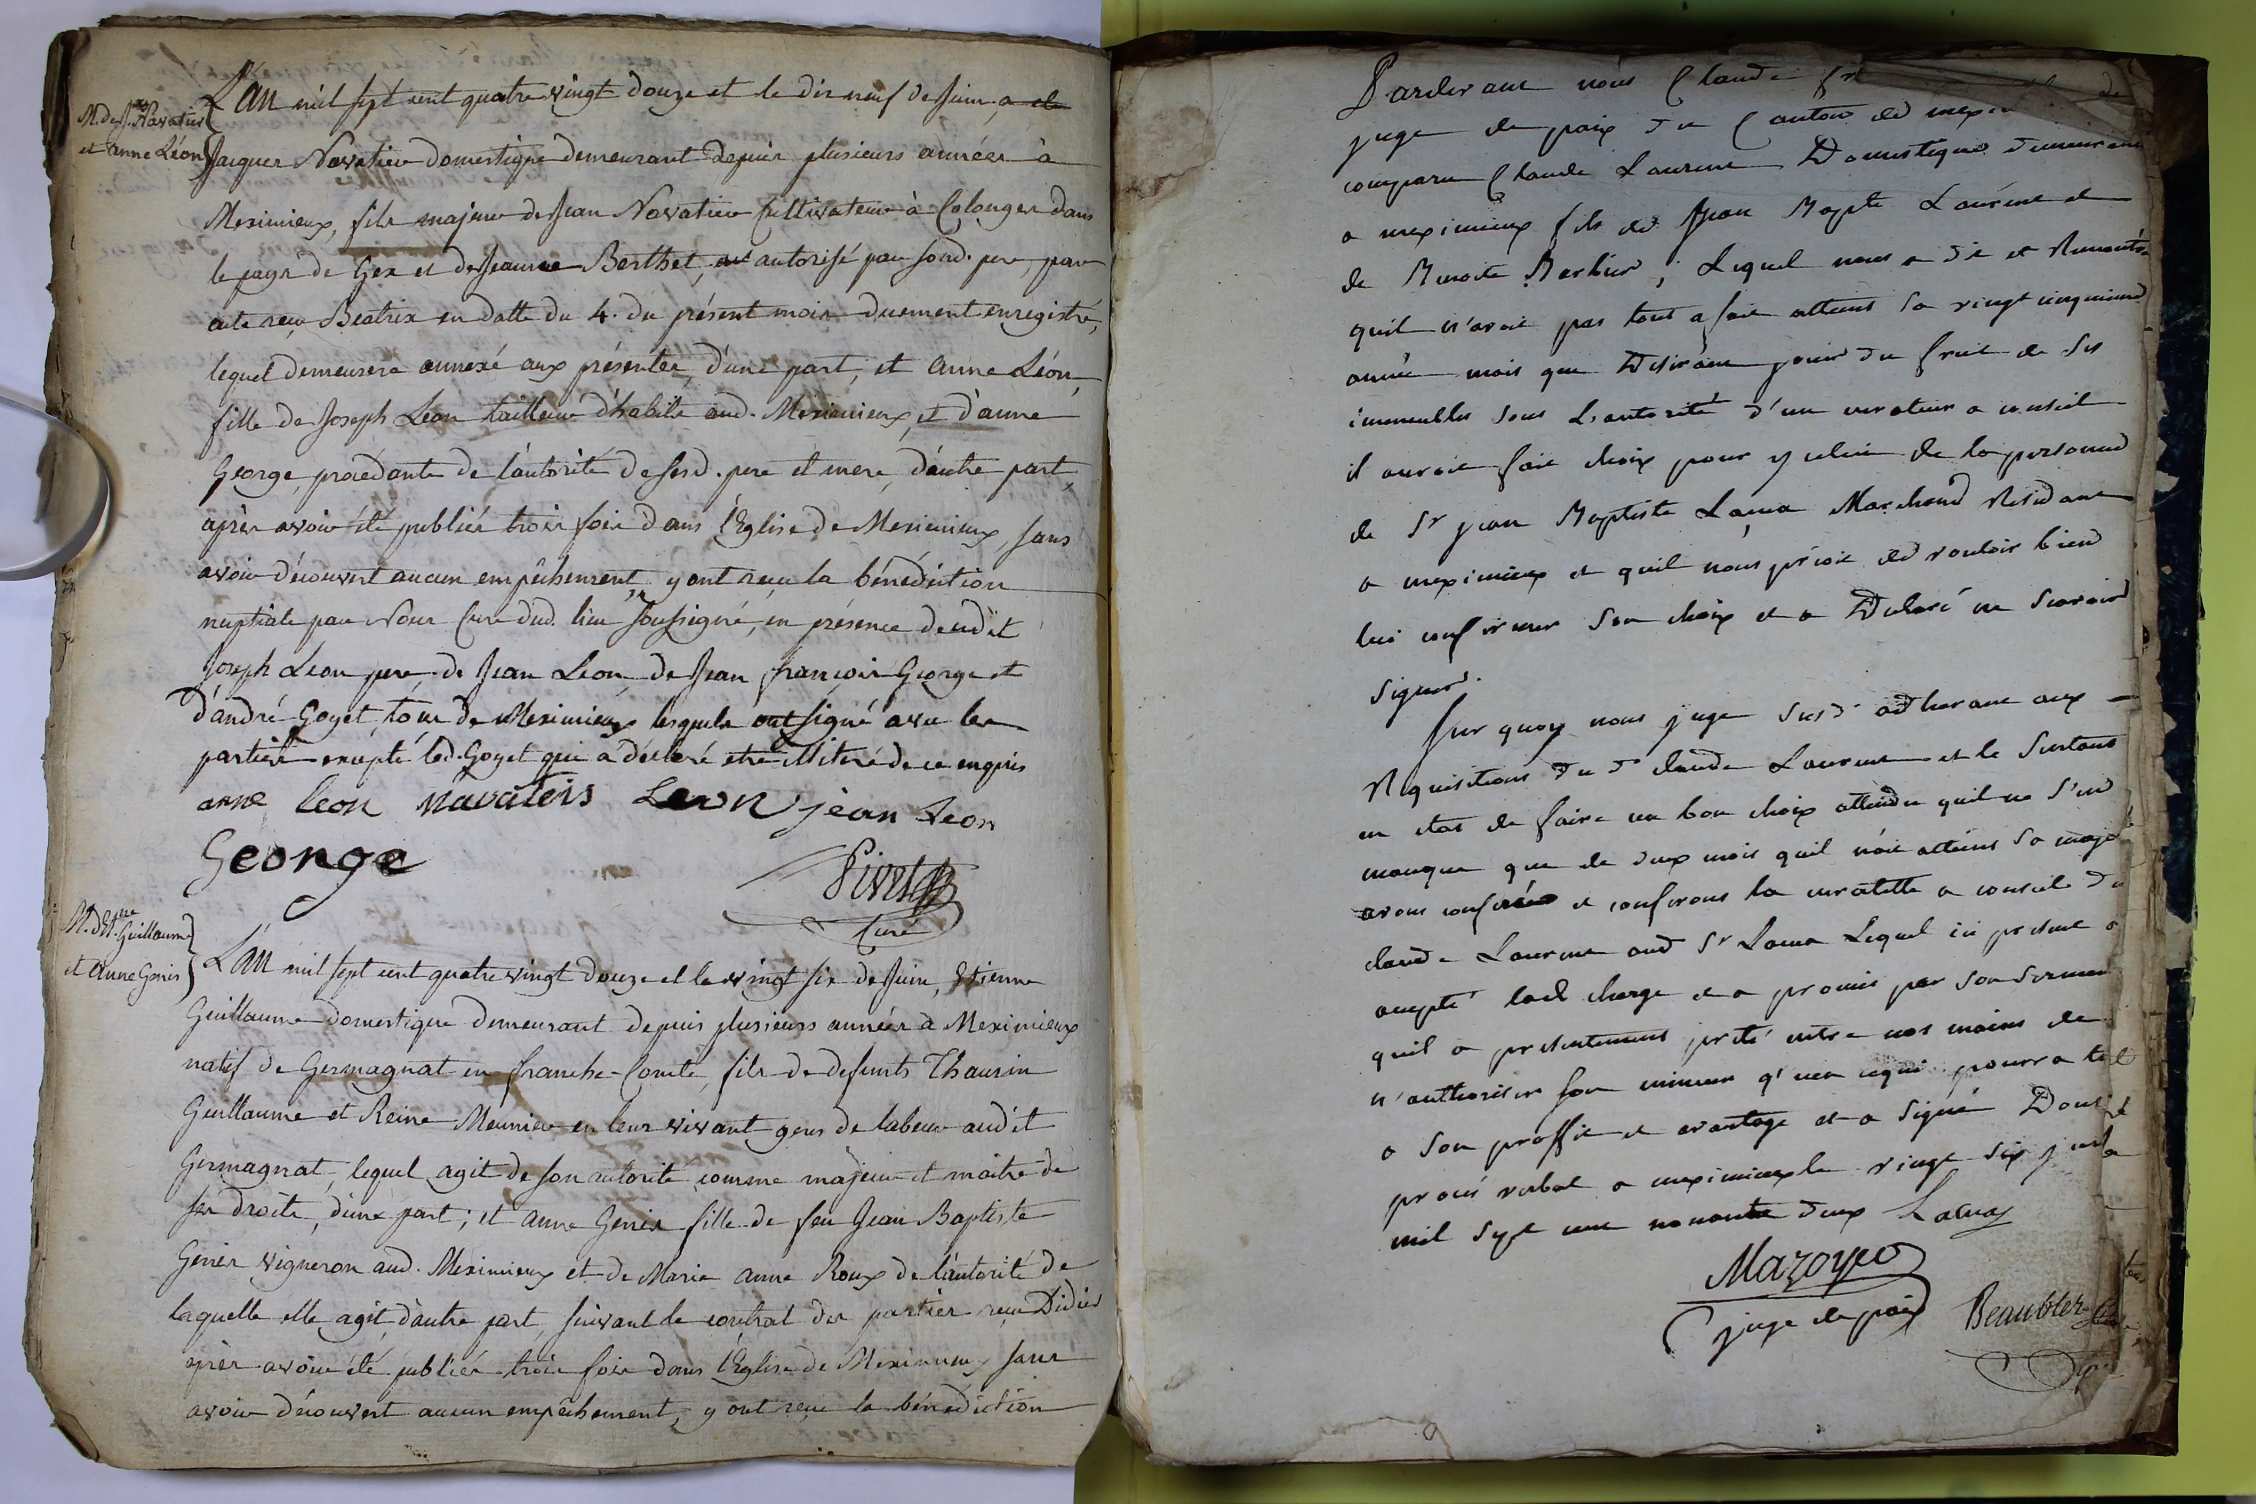 M. de J. Navatier
et anne Léon
L'an mil sept cent quatre vingt douze et le dix neuf de Juin, a été
Jacques Navatier domestique demeurant depuis plusieurs années à
Meximieux, fils majeur de Jean Navatier cultivateur à Colonges dans
le pays de Gex et de Jeanne Berthet, autorisé par sond. pere, par
acte reçu Beatrix en datte du 4. du présent mois duement enregistré,
lequel demeurera annexé aux présentes, d'une part, et anne Léon,
fille de Joseph Léon tailleur d'habits aud. Meximieux, et d'anne
George, procédante de l'autorité de sesd. pere et mere, d'autre part,
après avoir été publiés trois fois dans l'Eglise de Meximieux, sans
avoir découvert aucun empêchement, y ont reçu la bénédiction
nuptiale par Nous Curé dud. lieu soussigné, en présence dudit
Joseph Léon pere de Jean Léon de Jean françois George et
d'andré Goyet, tous de Meximieux lesquels ont signé avec les
parties excepté led. Goyet qui a déclaré etre illitéré de ce enquis
anne leon navatiers Leon jean Leon
George
Pivet
Curé
M. d'Et.nne Guillaume
et Anne Genis
L'an mil sept cent quatre vingt douze et le vingt six de Juin, Etienne
Guillaume domestique demeurant depuis plusieurs années à Meximieux
natif de Germagnat en franche-Comté, fils de defunts Thaurin
Guillaume et Reine Meunier en leur vivant gens de labeur audit
Germagnat, lequel agit de son autorité comme majeur et maitre de
ses droits, d'une part; et anne Genis fille de feu Jean Baptiste
Genis vigneron aud. Meximieux et de Marie anne Roux de l'autorité de
laquelle elle agit, d'autre part, suivant le contrat des parties reçu Didier
après avoir été publiés trois fois dans l'Eglise de Meximieux sans
avoir découvert aucun empêchement, y ont reçu la bénédiction
Pardevant nous Claude
juge de paix du Canton de
comparu Claude Laurent Domestique demeurant
a meximieux fils de Jean Bapte Laurent et
de Benoite Berbier, Lequel nous a dit et Remontré
quil n'avoit pas tout a fait atteint sa vingt cinquieme
année mais que Desirant jouir du fruit de ses
immeubles sous L'autorité d'un curateur a conseil
il auroit fait choix pour y celui de la personne
de Sr jean Baptiste Lacua Marchand Residant
a meximieux et quil nous prioit de vouloir bien
lui confirmer son choix et a Declaré ne scavoir
signer.
sur quoy nous juge susd. adherant aux
Requisitions du d. claude Laurent et le sentant
en etat de faire un bon choix attendu quil ne s'en
manque que de deux mois quil n'ait atteint sa
avons conféré et conferons la curatelle a conseil du
claude Laurent aud Sr Lacua Lequel ici present a
accepté lad. charge et a promis par son serment
quil a presentement preté entre nos mains de
n'authoriser son mineur qu'en cequi pourra
a son proffit et avantage et a signé Dont
procés verbal a meximieux le vingt six
mil sept cent nonante deux Lacua
Mazoyer
juge de paix
Beaublez